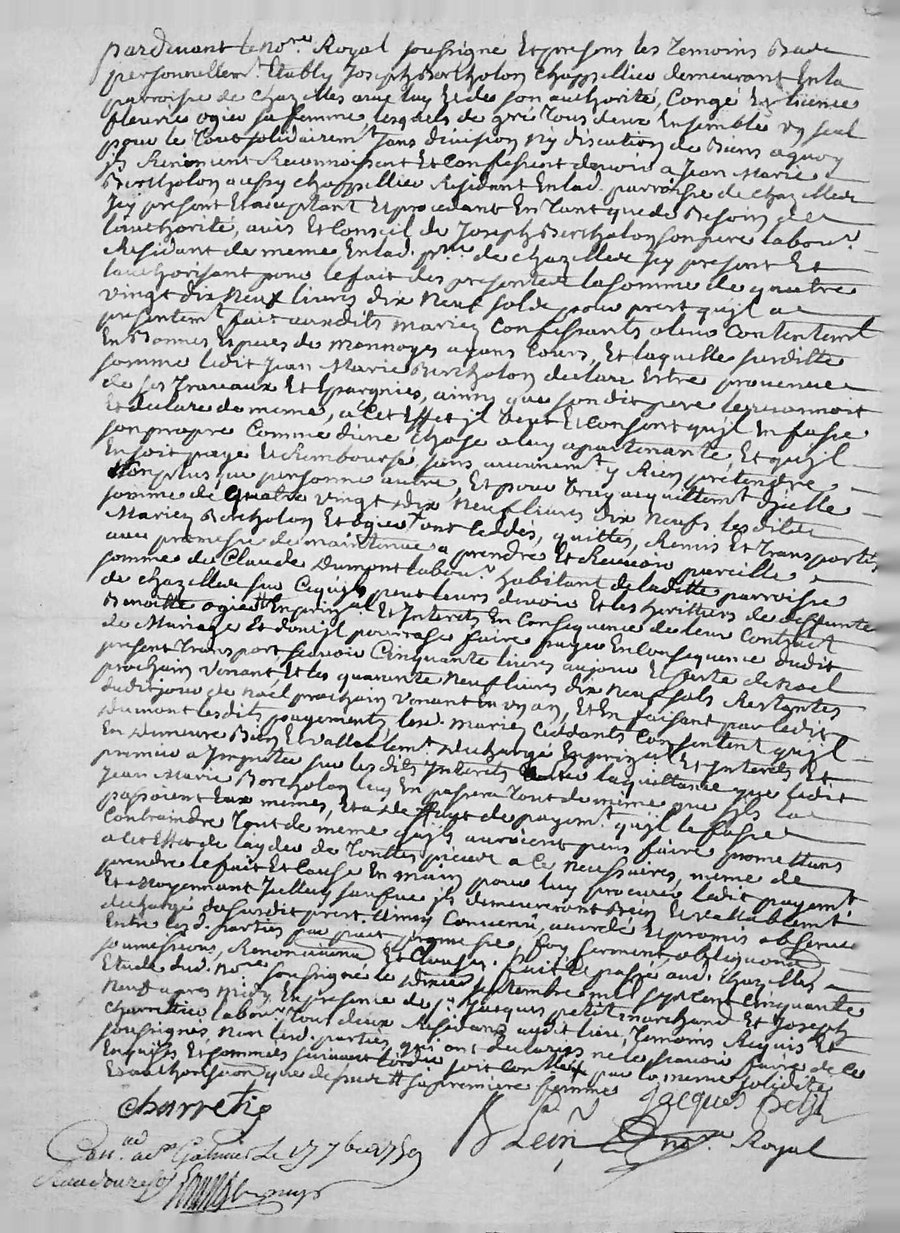 pardevant le no.re Royal soussigné Et presens les Temoins Bas
personnellem.t Etably Joseph Bertholon chappellier demeurant En la
parroisse de chazelles avec luy Et de son authorité, Congé Et licence
fleurie ogier sa femme, lesquels de gré Tous deux Ensemble un seul
pour le Tout solidairem.t sans division Ny discution de Biens a quoy
ils Renoncent Reconnoissent Et Confessent devoir a Jean Marie
Bertholon aussy chappellier Residant En lad. parroisse de chazelles
Icy present Et acceptant Et procedant En Tant que de Besoin de
l'authorité, avis Et Conseil de Joseph Bertholon son pere labour.r
Residant de meme En lad. p.sse de chazelles Icy present Et
l'authorisant pour le fait des presentes la somme de quatre
vingt dix neuf livres dix neuf sols pour prest qu'il a
presentem.t fait auxdits mariez Confessants a leur Contentem.t
En Bonnes Especes de monnoyes ayans Cours, Et laquelle susditte
somme ledit Jean Marie Bertholon declare Estre provenue
de ses Travaux Et Epargnes, ainsy que sondit pere le reconnoit
Et declare de meme, a Cet Effet il veut Et Consent qu'il En fasse
son propre Comme d'une Chose a luy apartenante, Et qu'il
En soit payé Et Rembourse sans aucunem.t y Rien pretendre
Non plus que personne autre, Et pour Tenir acquittem.t d'jcelle
somme de Quatre vingt dix Neuf livres dix Neufs les dits
Mariez Bertholon Et ogier ont Cedés, quittés, Remis Et Transportés
avec promesse de maintenue a prendre Et Recevoir pareille
somme de Claude Dumont labour.r habitant de laditte parroisse
de chazelles sur Ce qu'il peut leurs devoir Et les heritiers de deffunte
Benoitte ogier En prizal Et Interets En Consequence de leur Contract
de Mariage Et dont jl pourra se faire payer En Consequence dudit
present Transport scavoir Cinquante livres au jour Et feste de Noel
prochain venant Et les quarante Neuf livres dix neuf sols Restantes
dudit jour de noel prochain venant En un an, Et En faisant par ledit
Dumont lesdits payements lesd. mariez Cedants Consentent qu'jl
En Demeure Bien Et vallablem.t dechargé En prizal Et Interets Et
premier a Imputer sur lesdits Interets la quittance que ledit
Jean Marie Bertholon luy En passera Tout de même que s'jls la
passoient Eux memes, Et a deffaut de payem.t qu'jl le fasse
Contraindre Tout de meme qu'jls auroient peus faire promettans
a Cet Effet de l'ayder de Toutes pieces a Ce Necessaires, meme de
prendre le fait Et Cause En main pour luy procurer ledit payem.t
Et Moyennant Jcelluy jls demeureront Bien Et vallablem.t
dechargé du susdit prest, ainsy Convenu, accordé Et promis observer
Entre lesd. parties par foy serment, obligations
soumissions, Renonciations Et Clauses. fait Et passé aud. Chazelles
Etude dud. No.re soussigné le septembre mil sept Cent Cinquante
Neuf apres midy En presence de s.r Jacques petit marchand Et Joseph
Charretier labour.r Tous deux Residans audit lieu, Temoins Requis Et
soussignés, Non lesd. parties, qui ont declarés ne le scavoir faire de Ce
Enquis Et sommées suivant l'ordce soit par la meme solidité
Et authorisation que dessus sa premiere femme
charretie
Jacques petit
BLein no.re Royal
Con.lé a S.t Galmier Le 17 7bre 1759